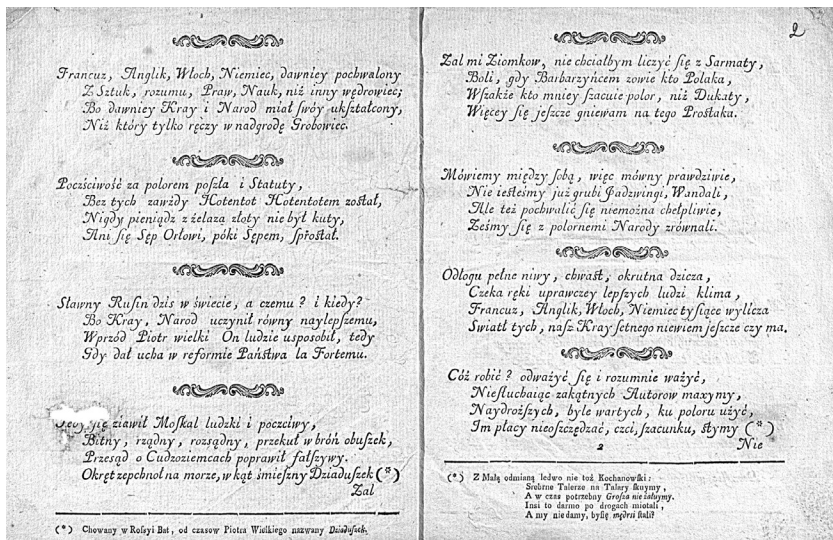 Francuz, Anglik, Włoch, Niemiec, dawniey pochwalony
Z Sztuk, rozumu, Praw, Nauk, niż inny wędrowiec;
Bo dawniey Kray i Narod miał swóy ukſztałcony,
Niż który tylko ręczy w nadgrodę Grobowiec.
Poczściwość za polorem poſzla i Statuty,
Bez tych zawżdy Hotentot Hotentotem zoſtał,
Nigdy pieniądz z żelaza złoty nie był kuty,
Ani ſię Sęp Orłowi, póki Sępem, ſproſtał.
Sławny Ruſin dzis w świecie, a czemu? i kiedy?
Bo Kray, Narod uczynił równy naylepſzemu,
Wprzód Piotr wielki On ludzie usposobił, tedy
Gdy dał ucha w reformie Pańſtwa la Fortemu.
ſię ziawił Moſkal ludzki i poczciwy,
Bitny, rządny, rozsądny, przekuł w bróń obuſzek,
Przesąd o Cudzoziemcach poprawił fałſzywy.
Okręt zepchnoł na morze, w kąt śmieſzny Dziaduſzek (*)
Zal
(*) Chowany w Roſsyi Bat, od czasow Piotra Wielkiego nazwany Dziaduſzek.
2
Zal mi Ziomkow, nie chciałbym liczyć ſię z Sarmaty,
Boli, gdy Barbarzyńcem zowie kto Polaka,
Wſzakże kto mniey ſzacuie polor, niż Dukaty,
Więcey ſię jeſzcze gniewam na tego Proſtaka.
Mówiemy między ſobą, więc mówny prawdziwie,
Nie ieſteśmy już grubi Jadzwingi, Wandali,
Ale też pochwalić ſię niemożna chełpliwie,
Żeśmy ſię z polornemi Narody zrównali.
Odłogu pełne niwy, chwaſt, okrutna dzicza,
Czeka ręki uprawczey lepſzych ludzi klima,
Francuz, Anglik, Włoch, Niemiec tyſiące wylicza
Swiatł tych, naſz Kray ſetnego niewiem jeſzcze czy ma.
Cóż robić? odważyć ſię i rozumnie ważyć,
Nieſłuchaiąc zakątnych Autorow maxymy,
Naydrożſzych, byle wartych, ku poloru użyć,
Im płacy nieoſzczędzać, czci, ſzacunku, ſtymy (*)
2
Nie
(*) Z Małą odmianą ledwo nie toż Kochanowſki:
Srebrne Talerze na Talary ſkuymy,
A w czas potrzebny Groſza nie żałuymy.
Insi to darmo po drogach miotali,
A my nie damy, byſię mędrſi ſtali?